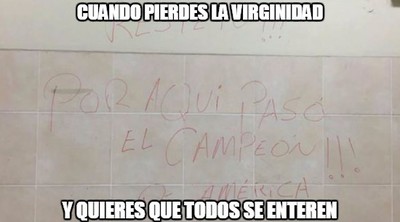 CUANDO PIERDES LA VIRGINIDAD
POR AQUI PASO
EL CAMPEON!!!
AMÉRICA
Y QUIERES QUE TODOS SE ENTEREN